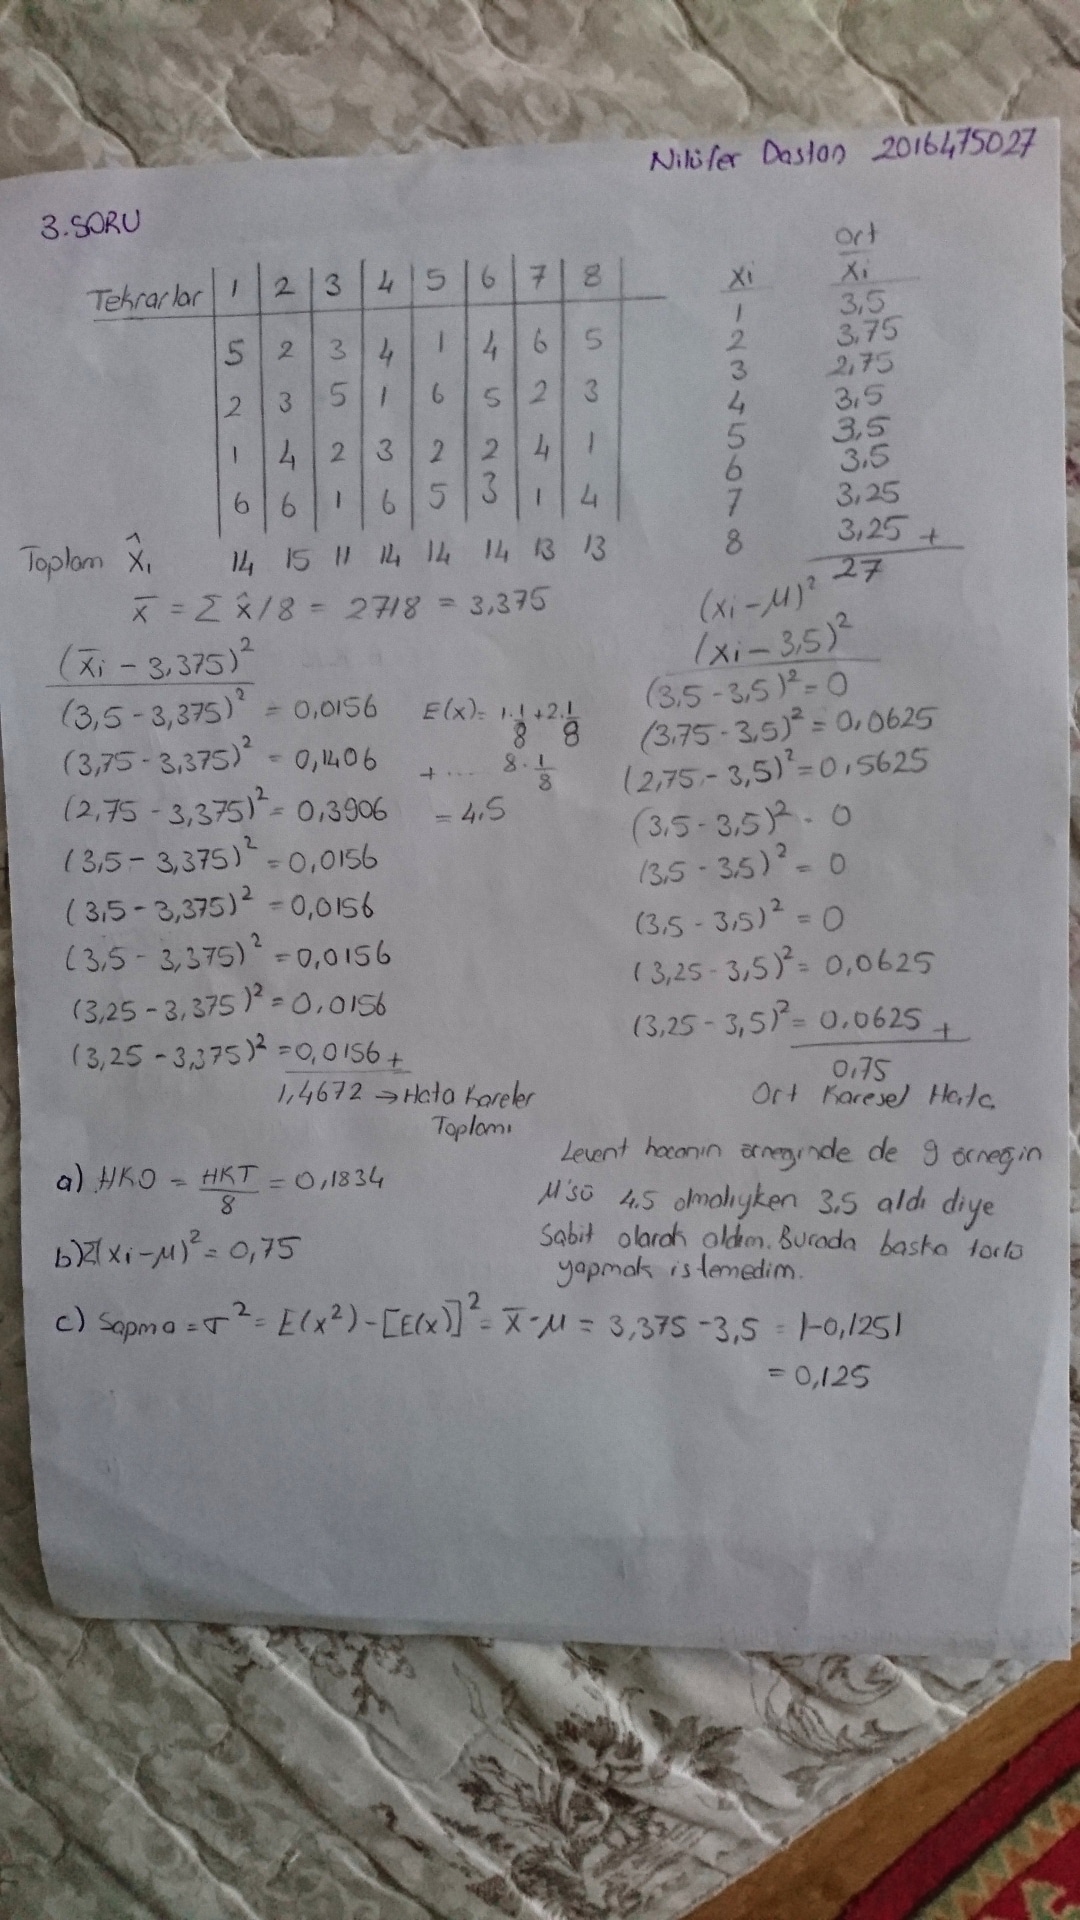 Nilüfer Dastan 2016475027
3.SORU
Tekrarlar 1 2 3 4 5 6 7 8
5 2 3 4 1 4 6 5
2 3 5 1 6 5 2 3
1 4 2 3 2 2 4 1
6 6 1 6 5 3 1 4
Toplam x̂₁ 14 15 11 14 14 14 13 13
xi Ort xi
1 3,5
2 3,75
3 2,75
4 3,5
5 3,5
6 3,5
7 3,25
8 3,25 +
27
x̄ = Σ x̂/8 = 27/8 = 3,375
(x̄i - 3,375)²
(3,5 - 3,375)² = 0,0156
(3,75 - 3,375)² = 0,1406
(2,75 - 3,375)² = 0,3906
(3,5 - 3,375)² = 0,0156
(3,5 - 3,375)² = 0,0156
(3,5 - 3,375)² = 0,0156
(3,25 - 3,375)² = 0,0156
(3,25 - 3,375)² = 0,0156 +
1,4672 → Hata Kareler
Toplamı
E(x) = 1.1/8 + 2.1/8
+ .... 8.1/8
= 4,5
(xi - μ)²
(xi - 3,5)²
(3,5 - 3,5)² = 0
(3,75 - 3,5)² = 0,0625
(2,75 - 3,5)² = 0,5625
(3,5 - 3,5)² = 0
(3,5 - 3,5)² = 0
(3,5 - 3,5)² = 0
(3,25 - 3,5)² = 0,0625
(3,25 - 3,5)² = 0,0625 +
0,75
Ort Karesel Hata
a) HKO = HKT/8 = 0,1834
b) Σ(xi - μ)² = 0,75
Levent hocanın örneğinde de 9 örneğin
μ'sü 4.5 olmalıyken 3.5 aldı diye
Sabit olarak aldım. Burada baska türlü
yapmak istemedim.
c) Sapma = σ² = E(x²) - [E(x)]² = x̄ - μ = 3,375 - 3,5 = |-0,125|
= 0,125